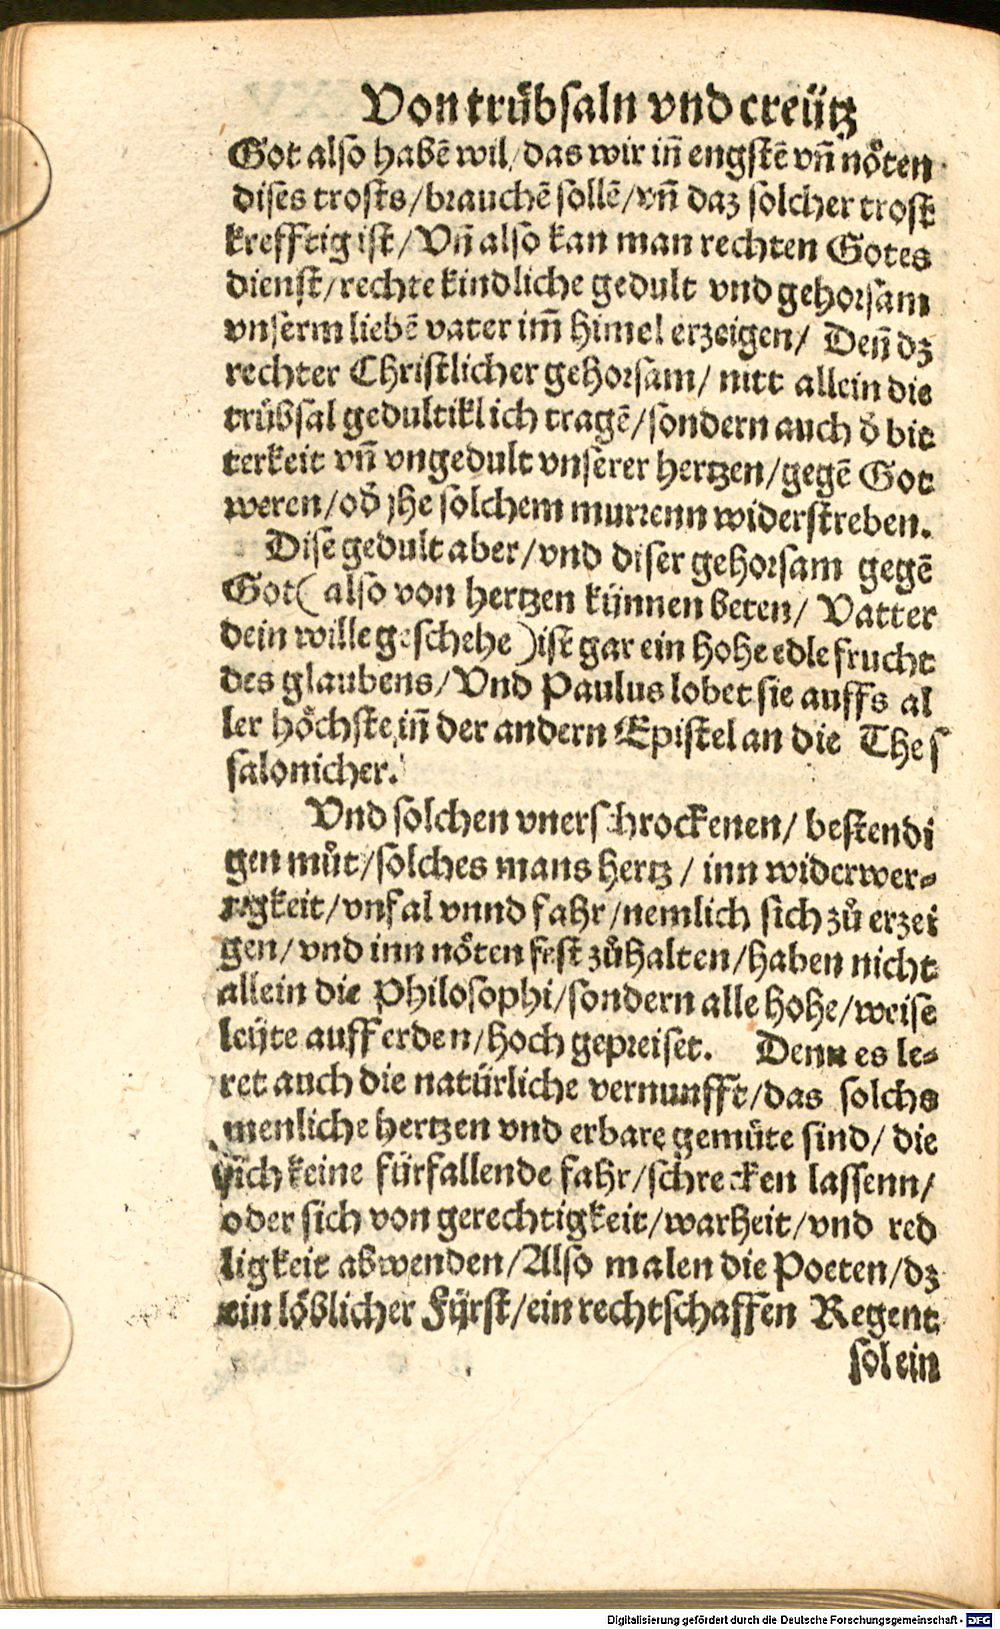 Von trübsaln vnd creütz
Got also habē wil/das wir iñ engstē vñ nöten
dises trosts/brauchē sollē/vñ daz solcher trost
krefftig ist/Vñ also kan man rechten Gotes
dienst/rechte kindliche gedult vnd gehorsam
vnserm liebē vater im̃ himel erzeigen/ Deñ dz
rechter Christlicher gehorsam/ nitt allein die
trübsal gedultiklich tragē/sondern auch d̓ bit
terkeit vñ vngedult vnserer hertzen/gegē Got
weren/od̓ jhe solchem murrenn widerstreben.
Dise gedult aber/vnd diser gehorsam gegē
Got( also von hertzen künnen beten/ Vatter
dein wille geschehe )ist gar ein hohe edle frucht
des glaubens/Vnd Paulus lobet sie auffs al
ler höchste iñ der andern Epistel an die Thes
salonicher.
Vnd solchen vnerschrockenen/ bestendi
gen můt/solches mans hertz / inn widerwer⸗
tigkeit/vnfal vnnd fahr/nemlich sich zů erzei
gen/vnd inn nöten fest zůhalten/haben nicht
allein die Philosophi/sondern alle hohe/weise
leüte auff erden/hoch gepreiset. Denn es le⸗
ret auch die natürliche vernunfft/das solchs
menliche hertzen vnd erbare gemüte sind/ die
sich keine fürfallende fahr/schrecken lassenn/
oder sich von gerechtigkeit/warheit/vnd red
ligkeit abwenden/Also malen die Poeten/dz
ein löblicher Fürst/ein rechtschaffen Regent
sol ein
Digitalisierung gefördert durch die Deutsche Forschungsgemeinschaft - DFG